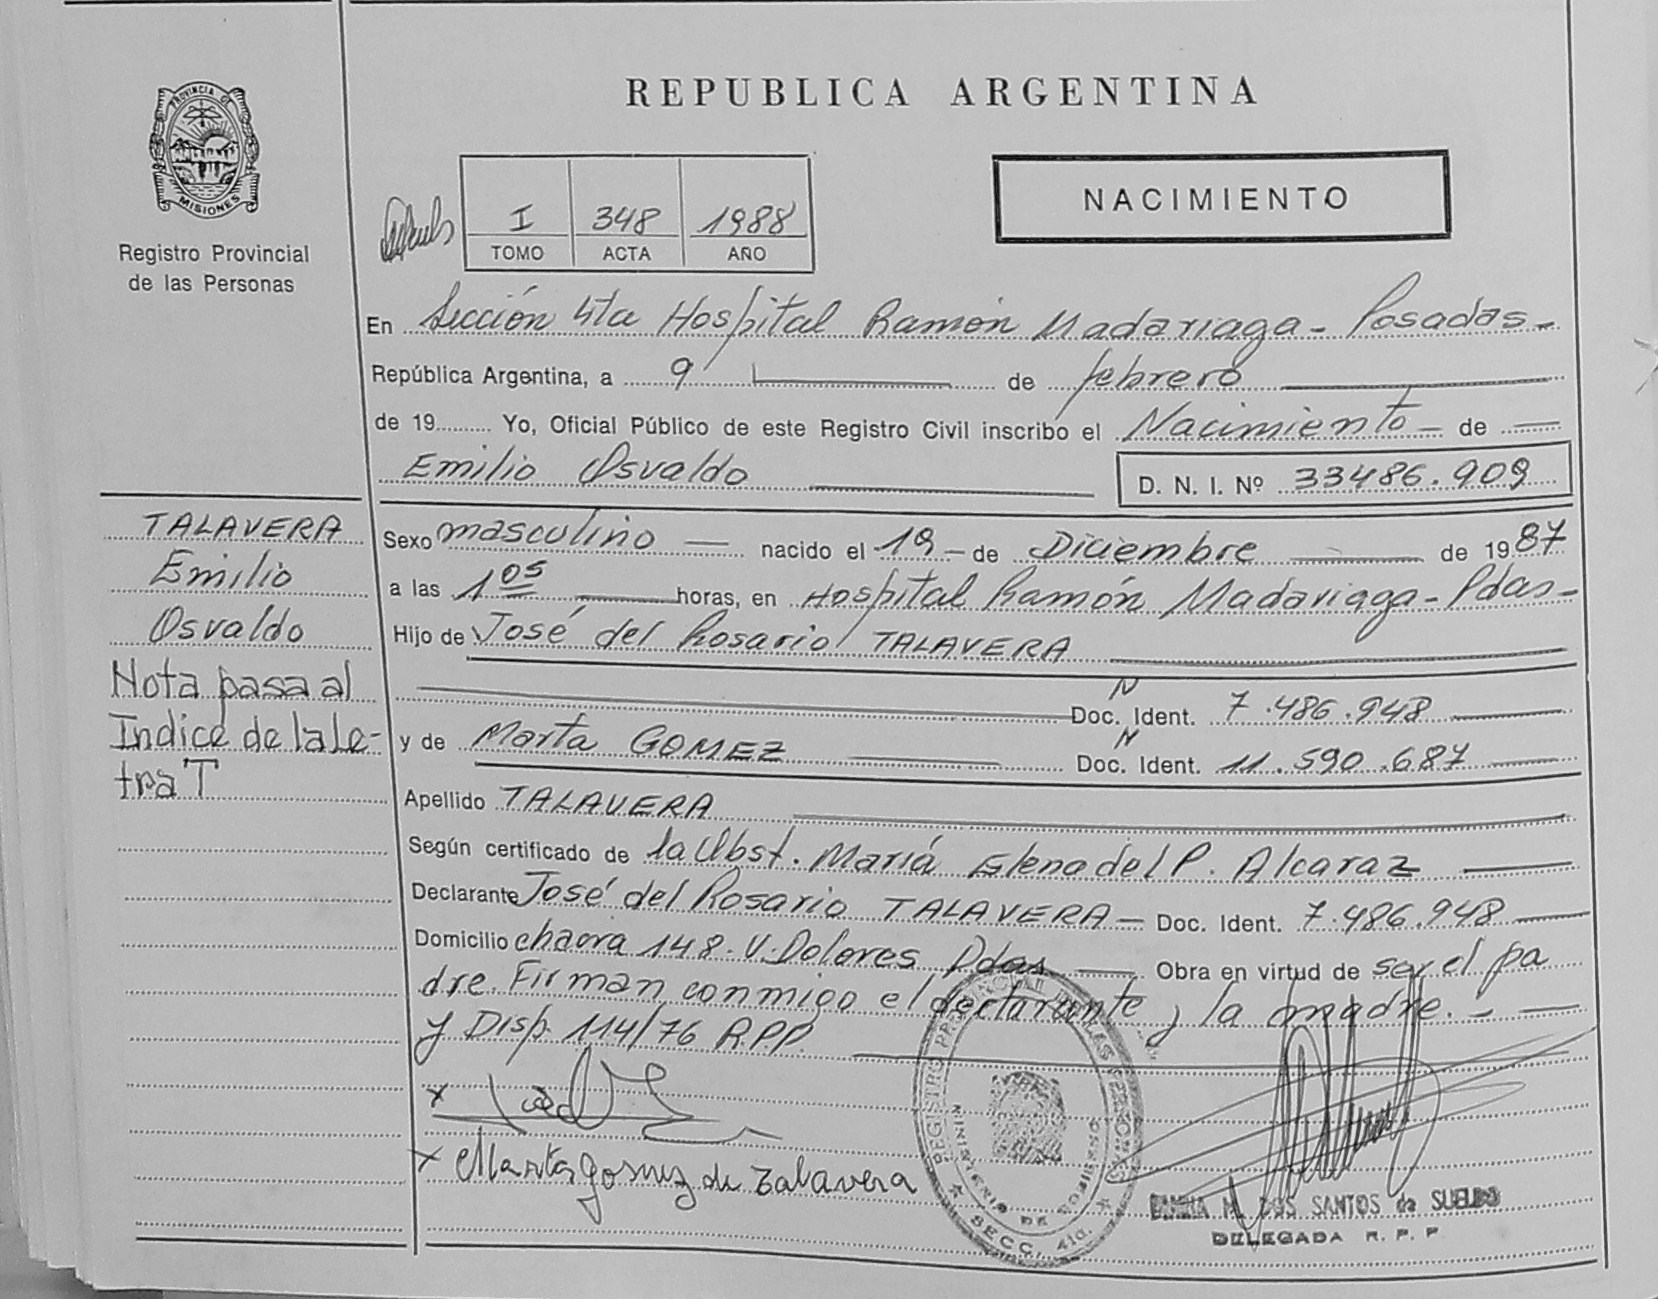 PROVINCIA DE
MISIONES
Registro Provincial
de las Personas
REPUBLICA ARGENTINA
NACIMIENTO
I 348 1988
TOMO ACTA AÑO
En Sección 4ta Hospital Ramón Madariaga - Posadas -
República Argentina, a 9 de febrero
de 19 Yo, Oficial Público de este Registro Civil inscribo el Nacimiento - de
Emilio Osvaldo
D. N. I. Nº 33486.909
TALAVERA
Emilio
Osvaldo
Nota pasa al
Indice de la Le-
tra T
Sexo masculino - nacido el 19 - de Diciembre de 1987
a las 1 05 horas, en Hospital Ramón Madariaga - Pdas -
Hijo de José del Rosario TALAVERA
N
Doc. Ident. 7.486.948
y de Marta GOMEZ
N
Doc. Ident. 11.590.687
Apellido TALAVERA
Según certificado de la Obst. María Elena del P. Alcaraz
Declarante José del Rosario TALAVERA - Doc. Ident. 7.486.948
Domicilio chacra 148. V. Dolores Pdas Obra en virtud de ser el pa
dre. Firman conmigo el declarante y la madre. -
y Disp. 114/76 R.P.P.
x
x Marta Gomez de Talavera
REGISTRO PROVINCIAL DE LAS PERSONAS
MINISTERIO DE GOBIERNO
SECC. 4ta.
M. DOS SANTOS de SUELDO
DELEGADA R. P. P.